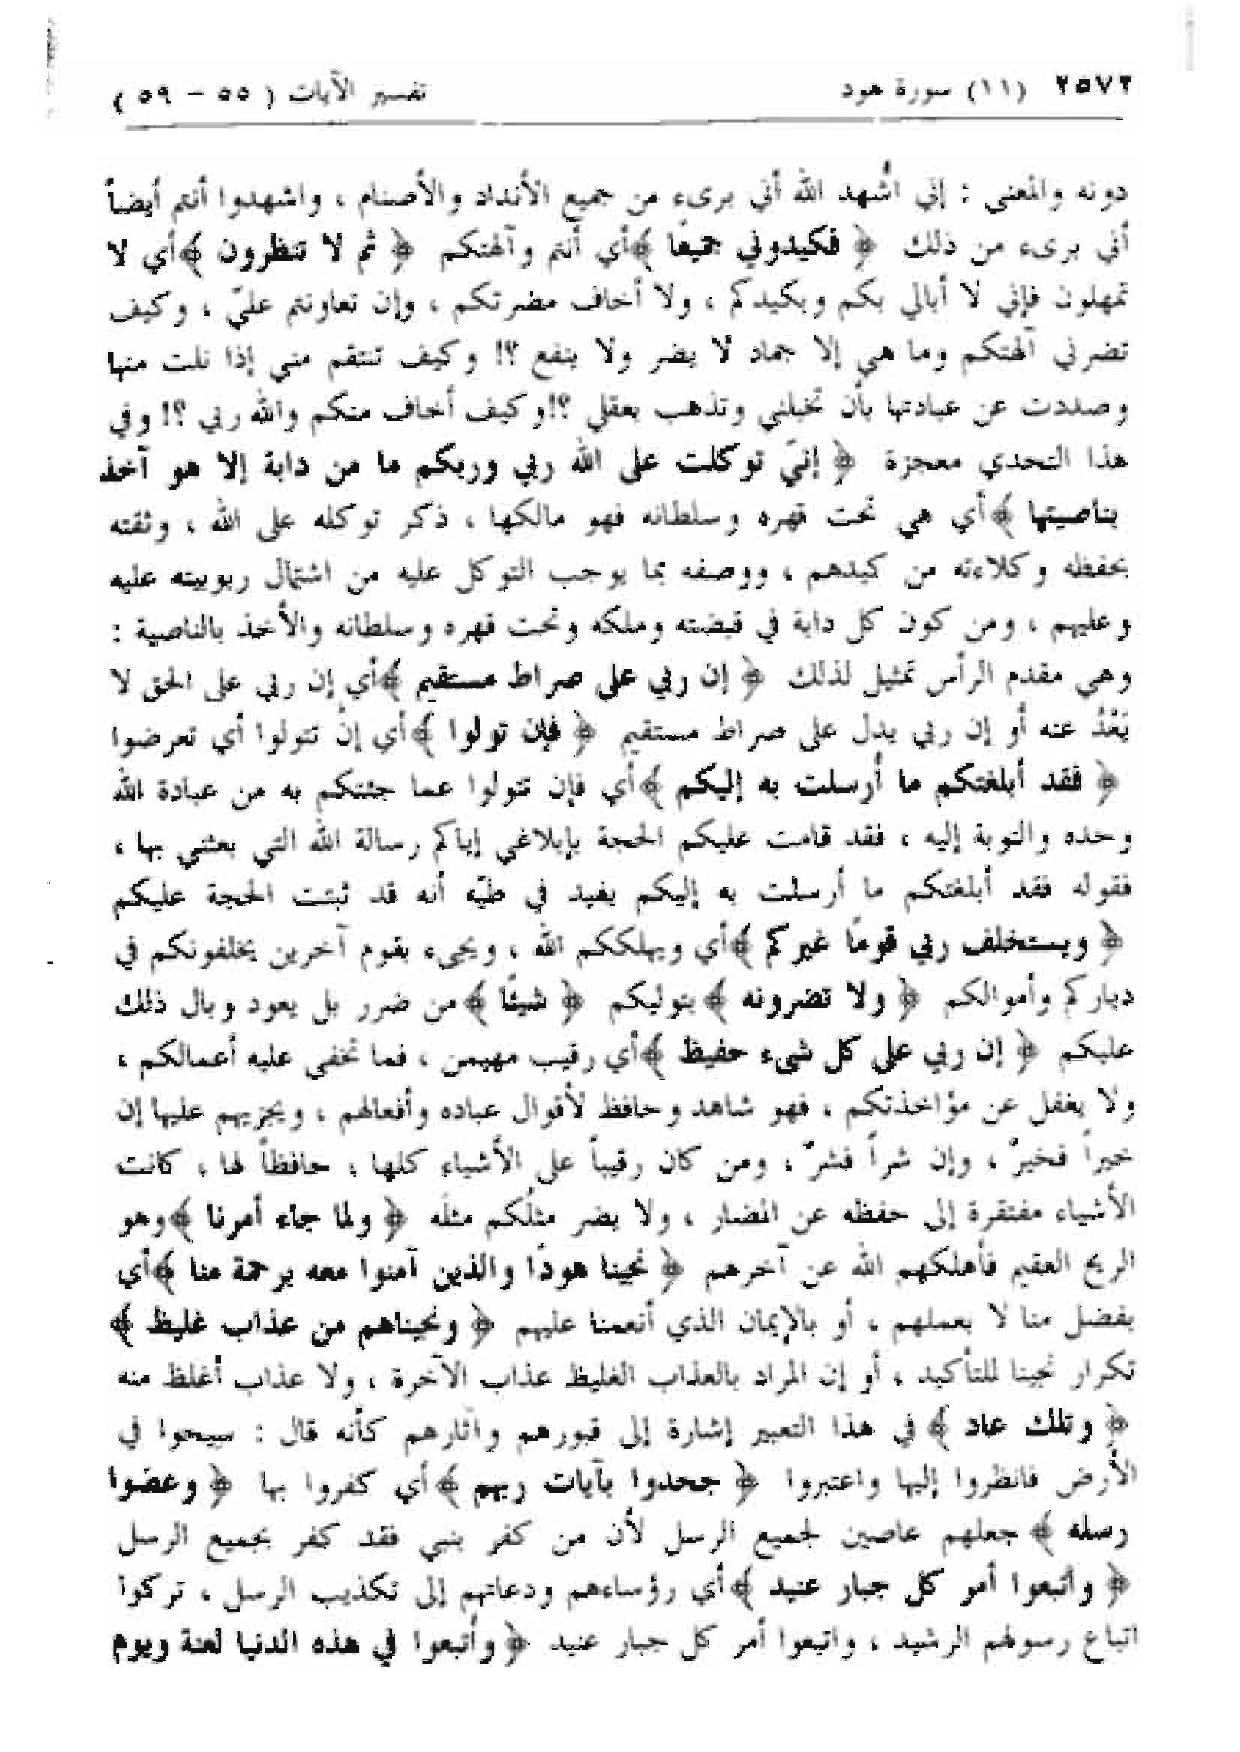 ٢٥٧٢ (١١) سورة هود تفسير الآيات ( ٥٥ – ٥٩ )
دونه والمعنى : إني أُشهد الله أني برىء من جميع الأنداد والأصنام ، واشهدوا أنتم أيضاً
أني برىء من ذلك ﴿ فكيدوني جميعًا ﴾ أي أنتم وآلهتكم ﴿ ثم لا تنظرون ﴾ أي لا
تمهلون فإني لا أبالي بكم وبكيدكم ، ولا أخاف مضرتكم ، وإن تعاونتم عليّ ، وكيف
تضرني آلهتكم وما هي إلا جماد لا يضر ولا ينفع ؟! وكيف تنتقم مني إذا نلت منها
وصددت عن عبادتها بأن تخبلني وتذهب بعقلي ؟! وكيف أخاف منكم والله ربي ؟! وفي
هذا التحدي معجزة ﴿ إنيّ توكلت على الله ربي وربكم ما من دابة إلا هو آخذ
بناصيتها ﴾ أي هي تحت قهره وسلطانه فهو مالكها ، ذكر توكله على الله ، وثقته
بحفظه وكلاءته من كيدهم ، ووصفه بما يوجب التوكل عليه من اشتمال ربوبيته عليه
وعليهم ، ومن كون كل دابة في قبضته وملكه وتحت قهره وسلطانه والأخذ بالناصية :
وهي مقدم الرأس تمثيل لذلك ﴿ إن ربي على صراط مستقيم ﴾ أي إن ربي على الحق لا
يَعْدُ عنه أو إن ربي يدل على صراط مستقيم ﴿ فإن تولوا ﴾ أي إنْ تتولوا أي تعرضوا
﴿ فقد أبلغتكم ما أُرسلت به إليكم ﴾ أي فإن تتولوا عما جئتكم به من عبادة الله
وحده والتوبة إليه ، فقد قامت عليكم الحجة بإبلاغي إياكم رسالة الله التي بعثني بها ،
فقوله فقد أبلغتكم ما أرسلت به إليكم يفيد في طيّه أنه قد ثبتت الحجة عليكم
﴿ ويستخلف ربي قومًا غيركم ﴾ أي ويهلككم الله ، ويجىء بقوم آخرين يخلفونكم في
دياركم وأموالكم ﴿ ولا تضرونه ﴾ بتوليكم ﴿ شيئًا ﴾ من ضرر بل يعود وبال ذلك
عليكم ﴿ إن ربي على كل شىء حفيظ ﴾ أي رقيب مهيمن ، فما تخفى عليه أعمالكم ،
ولا يغفل عن مؤاخذتكم ، فهو شاهد وحافظ لأقوال عباده وأفعالهم ، ويجزيهم عليها إن
خيراً فخيرٌ ، وإن شراً فشرٌ ، ومن كان رقيباً على الأشياء كلها ، حافظاً لها ، كانت
الأشياء مفتقرة إلى حفظه عن المضار ، ولا يضر مثلُكم مثلَه ﴿ ولما جاء أمرنا ﴾ وهو
الريح العقيم فأهلكهم الله عن آخرهم ﴿ نجينا هودًا والذين آمنوا معه برحمة منا ﴾ أي
بفضل منا لا بعملهم ، أو بالإيمان الذي أنعمنا عليهم ﴿ ونجيناهم من عذاب غليظ ﴾
تكرار نجينا للتأكيد ، أو إن المراد بالعذاب الغليظ عذاب الآخرة ، ولا عذاب أغلظ منه
﴿ وتلك عاد ﴾ في هذا التعبير إشارة إلى قبورهم وآثارهم كأنه قال : سيحوا في
الأرض فانظروا إليها واعتبروا ﴿ جحدوا بآيات ربهم ﴾ أي كفروا بها ﴿ وعصوا
رسله ﴾ جعلهم عاصين لجميع الرسل لأن من كفر بنبي فقد كفر بجميع الرسل
﴿ واتبعوا أمر كل جبار عنيد ﴾ أي رؤساءهم ودعاتهم إلى تكذيب الرسل ، تركوا
اتباع رسولهم الرشيد ، واتبعوا أمر كل جبار عنيد ﴿ وأُتبعوا في هذه الدنيا لعنة ويوم